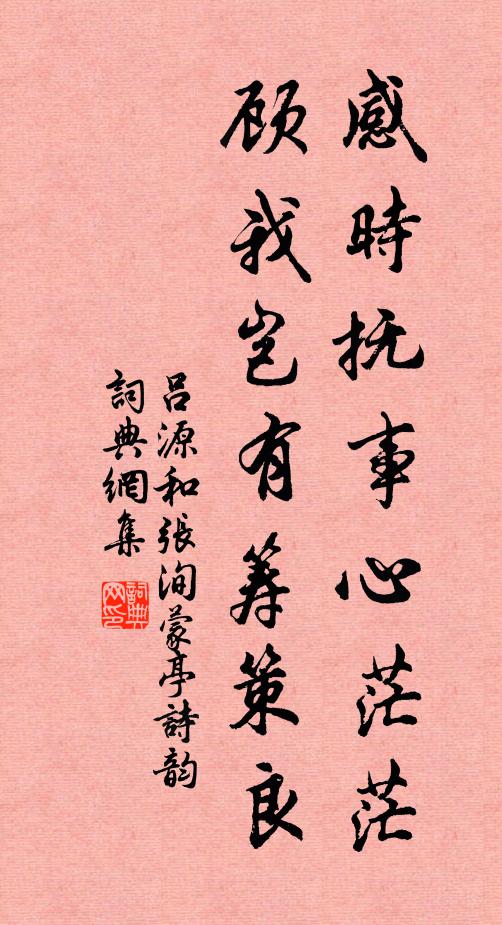 感時抚事心茫茫
顾我岂有筹策良
吕源和張洵蒙亭詩韵
詞典網集
詞典网印